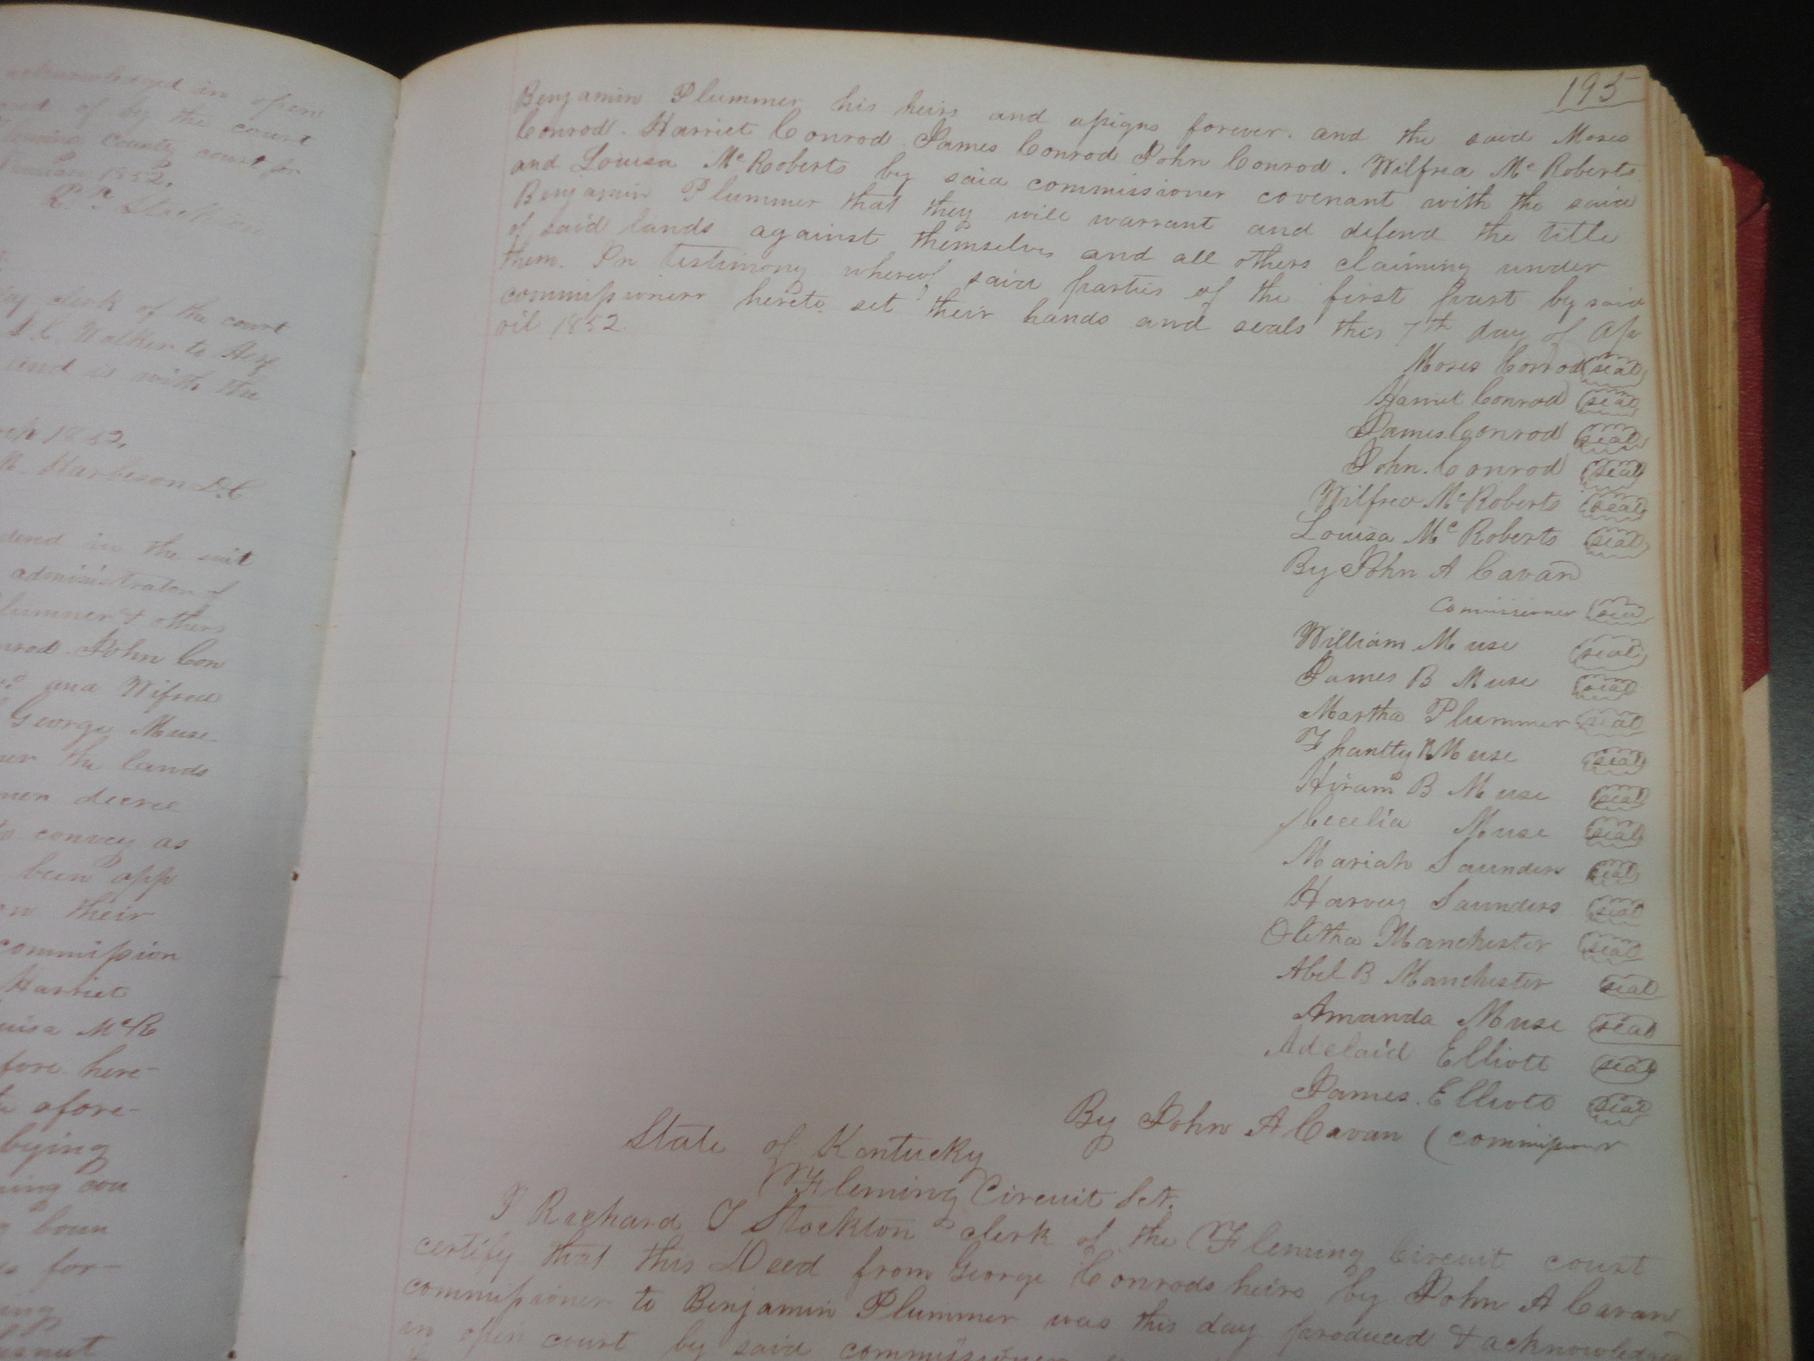 acknowledged in open
of by the court
Fleming County court for
1852.
Stockton
clerk of the court
Walker to
and is with the
1852.
Harbeson D.C
in the suit
administrator of
Plummer & others
John Con
and Wilfred
George Muse
the lands
decree
to convey as
been app
their
commission
Harriet
McR
fore here-
afore-
boun
for-
195
Benjamin Plummer his heirs and assigns forever. and the said Moses
Conrod. Harriet Conrod James Conrod John Conrod. Wilfred Mc Roberts
and Louisa Mc Roberts by said commissioner covenant with the said
Benjamin Plummer that they will warrant and defend the title
of said lands against themselves and all others claiming under
them. In testimony whereof said parties of the first part by said
commissioner hereto set their hands and seals this 7th day of Ap
ril 1852.
Moses Conrod seal
Harriet Conrod seal
James Conrod seal
John. Conrod seal
Wilfred Mc Roberts seal
Louisa Mc Roberts seal
By John A Cavan
Commissioner seal
William Muse seal
James B Muse seal
Martha Plummer seal
Muse seal
Hiram B Muse seal
Cecelia Muse seal
Mariah Saunders seal
Harvey Saunders seal
Olitha Manchester seal
Abel B Manchester seal
Amanda Muse seal
Adelaid Elliott seal
James. Elliott seal
By John A Cavan (commissioner
State of Kentucky
Fleming Circuit Sct.
I Richard T Stockton clerk of the Fleming Circuit court
certify that this Deed from George Conrods heirs by John A Cavan
commissioner to Benjamin Plummer was this day produced & acknowledged
in open court by said commissioner